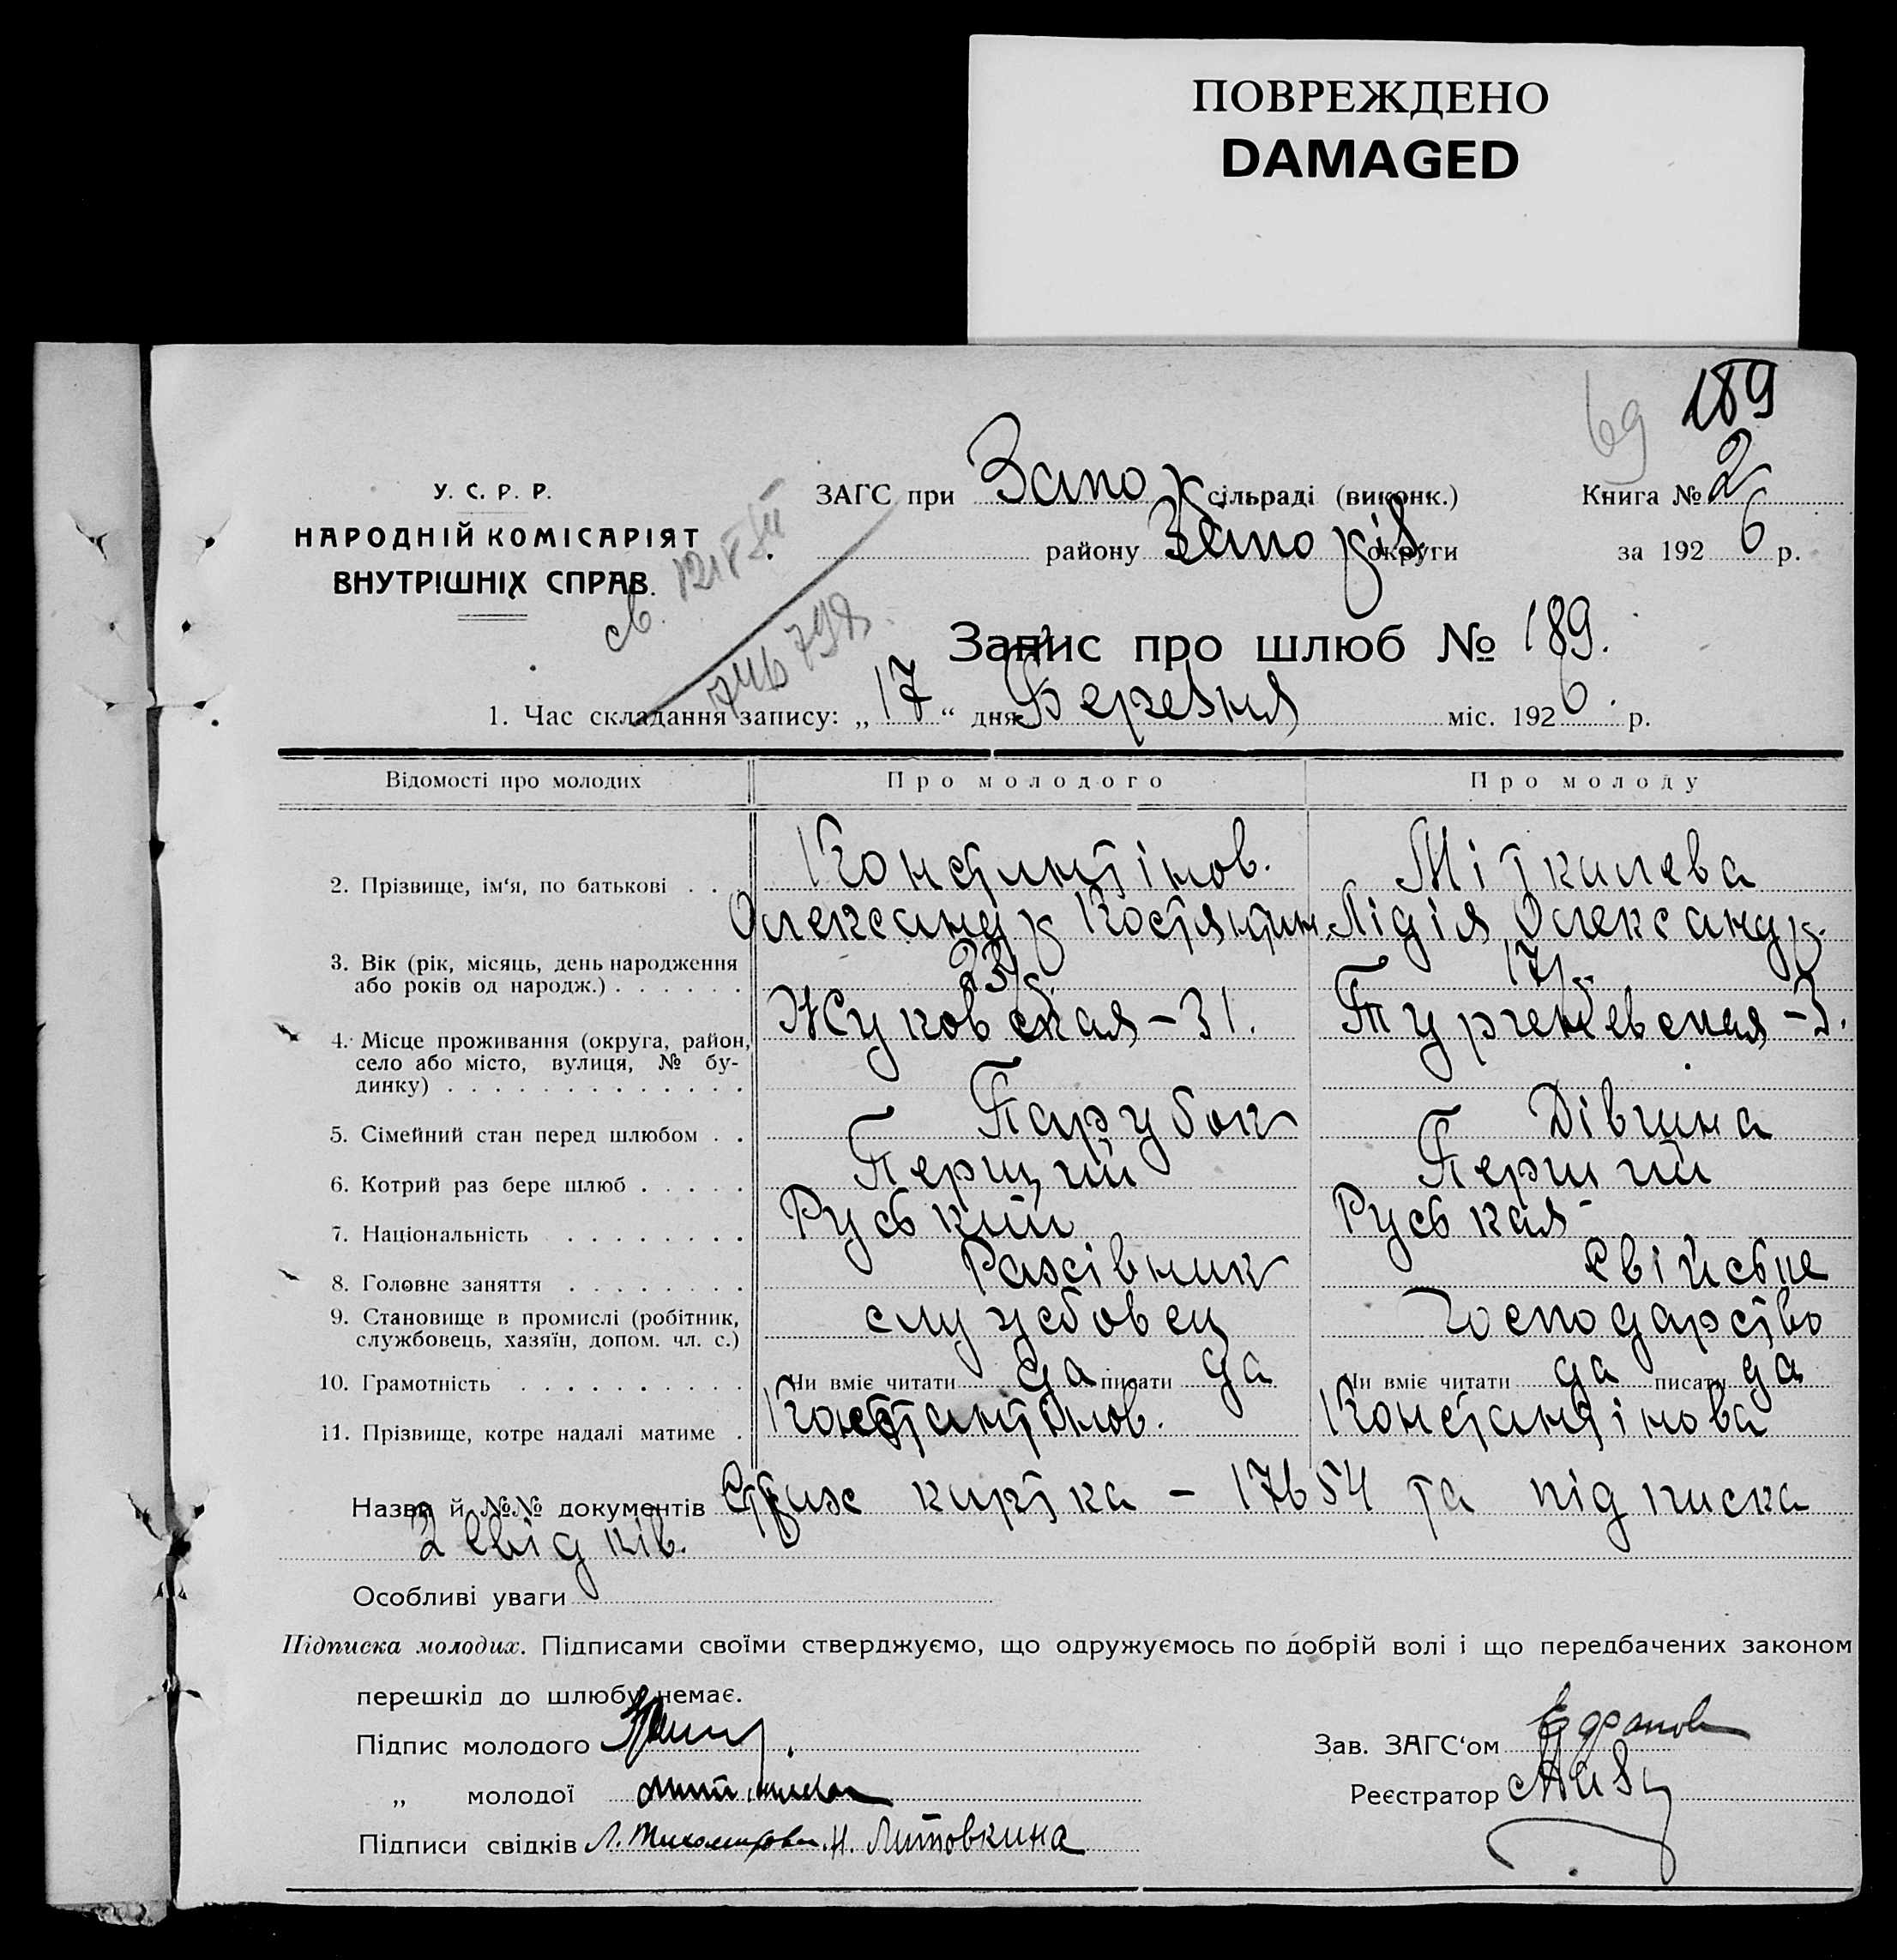 ПОВРЕЖДЕНО
DAMAGED
69 189
У. С. Р. Р.
НАРОДНІЙ КОМІСАРІЯТ
ВНУТРІШНІХ СПРАВ.
ЗАГС при Запор сільраді (виконк.) Книга № 2
району Запоріз округи за 1926 р.
Запис про шлюб № 189.
1. Час складання запису: „17“ дня Березня міс. 1926 р.
Відомості про молодих Про молодого Про молоду
2. Прізвище, ім‘я, по батькові . . . Константінов. Міткилева
Олександр Костянтин. Лідія Олександр.
3. Вік (рік, місяць, день народження
або років од народж.) . . . . . . 23 17
Жуковская – 31. Тургеневская – 3.
4. Місце проживання (округа, район,
село або місто, вулиця, № бу-
динку) . . . . . . . . . . . . .
5. Сімейний стан перед шлюбом . . Парубок Дівчина
6. Котрий раз бере шлюб . . . . . Перший Перший
7. Національність . . . . . . . . Руський Руськая
8. Головне заняття . . . . . . . . Свійське
9. Становище в промислі (робітник,
службовець, хазяїн, допом. чл. с.) службовец господарство
10. Грамотність . . . . . . . . . . Чи вміє читати да писати да Чи вміє читати да писати да
11. Прізвище, котре надалі матиме . Константінов. Константінова
Назви й №№ документів картка – 17654 та підписка
2 свідків.
Особливі уваги
Підписка молодих. Підписами своїми стверджуємо, що одружуємось по добрій волі і що передбачених законом
перешкід до шлюбу немає.
Підпис молодого Зав. ЗАГС‘ом
„ молодої Реєстратор
Підписи свідків Л. Тихомирова. Н. Литовкина